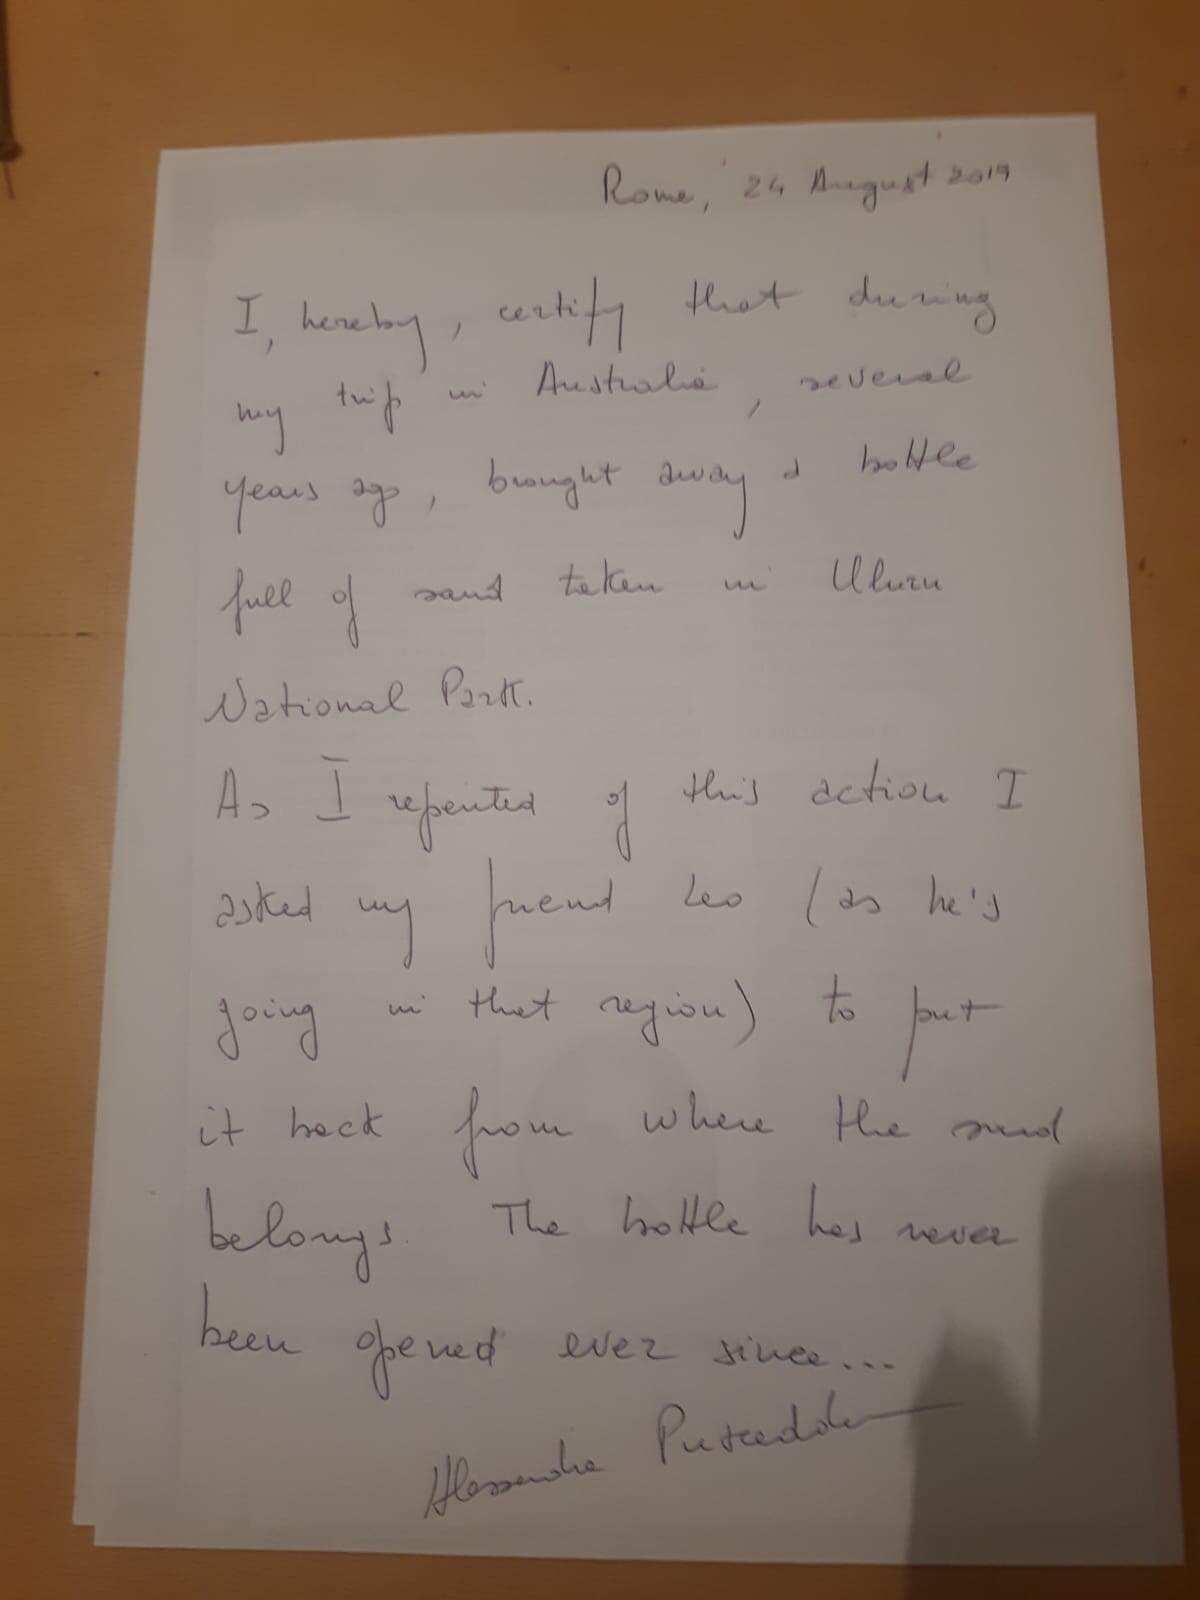 Rome, 24 August 2019
I, hereby, certify that during
my trip in Australia, several
years ago, brought away a bottle
full of sand taken in Uluru
National Park.
As I repented of this action I
asked my friend Leo (as he's
going in that region) to put
it back from where the sand
belongs. The bottle has never
been opened ever since...